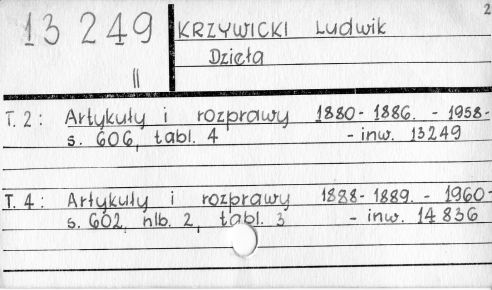 2
13 249 KRZYWICKI Ludwik
Dzieła
II
T. 2: Artykuły i rozprawy 1880-1886. - 1958-
s. 606, tabl. 4 - inw. 13249
T. 4: Artykuły i rozprawy 1888-1889. - 1960-
s. 602, nlb. 2, tabl. 3 - inw. 14836